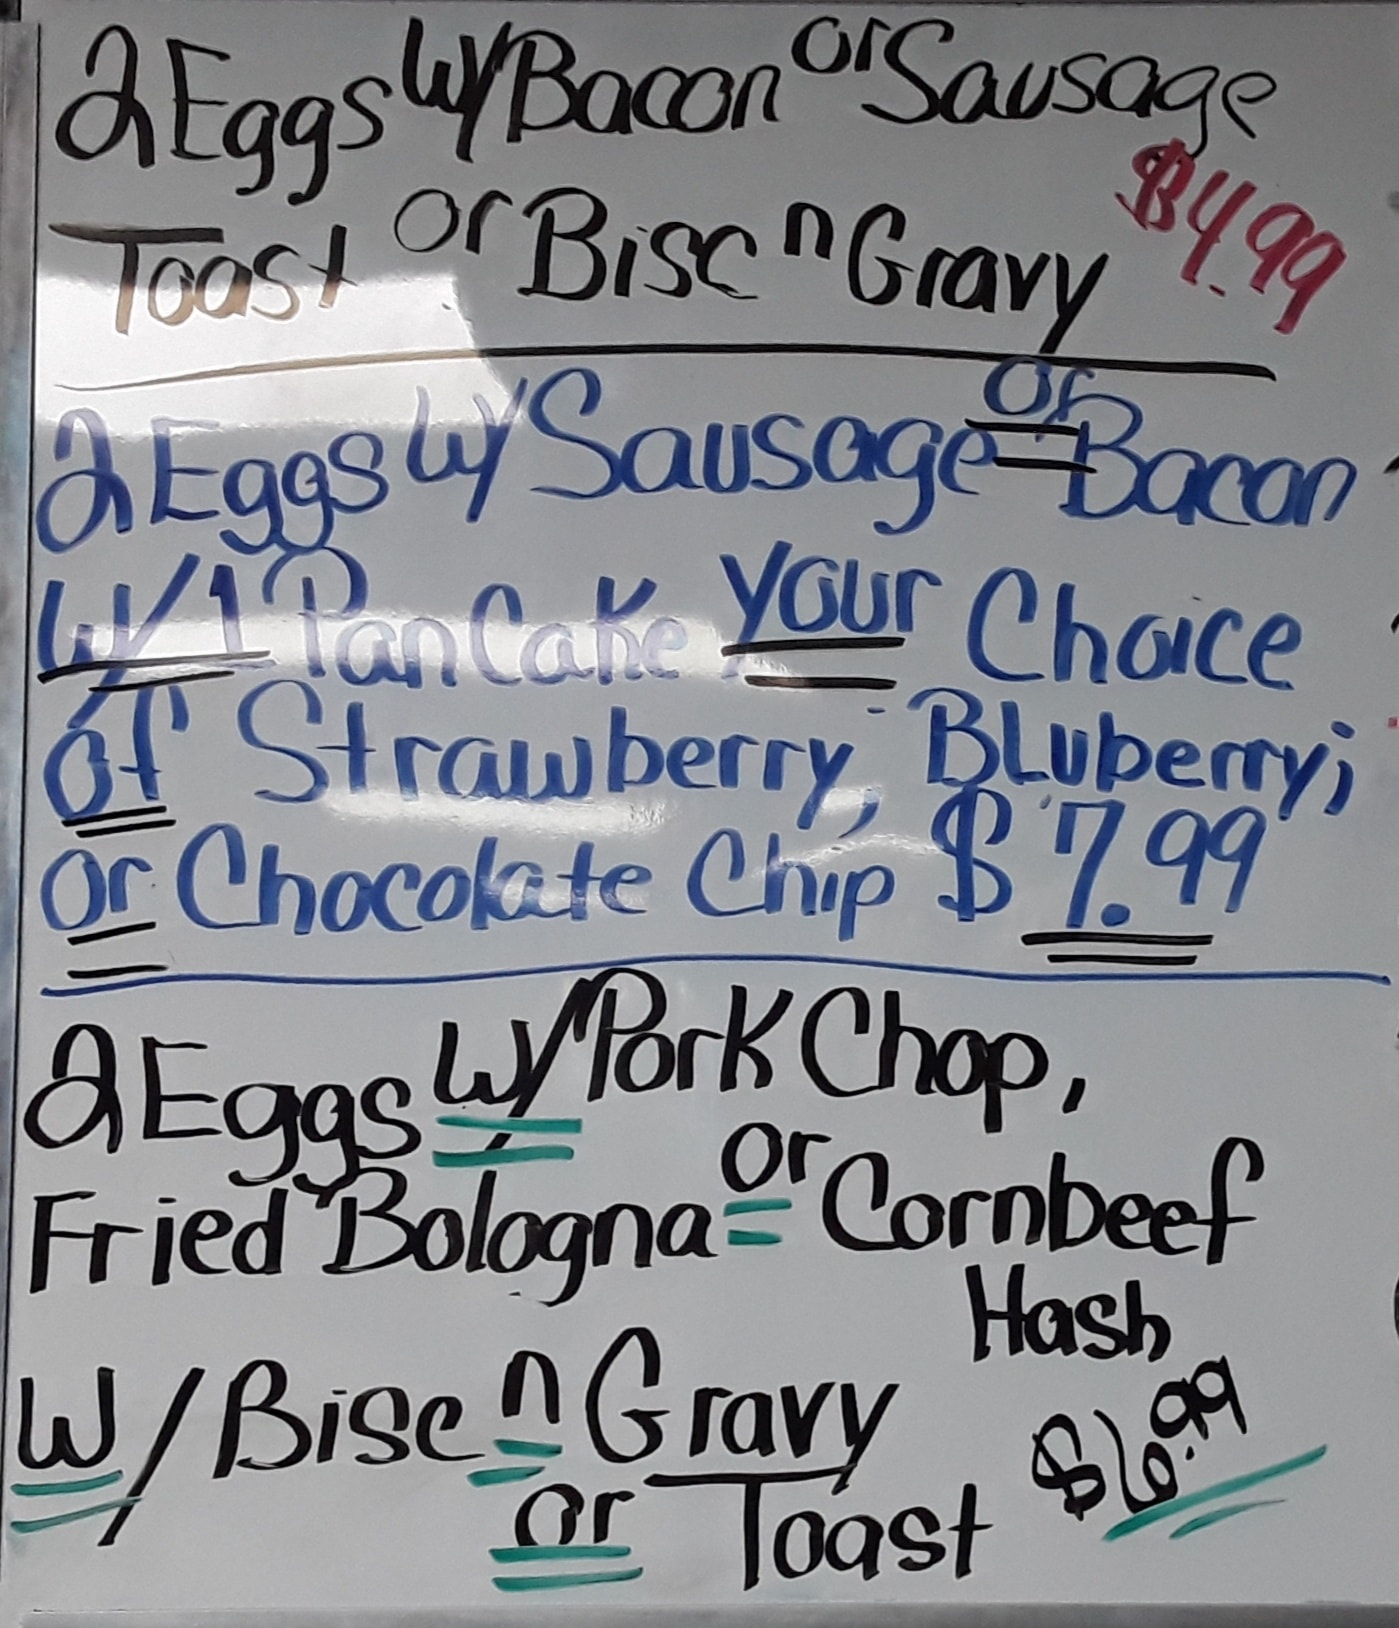 2 Eggs w/ Bacon or Sausage
Toast or Bisc n Gravy $4.99
2 Eggs w/ Sausage or Bacon
w/ 1 PanCake your Choice
of Strawberry, BLuberry,
or Chocolate Chip $7.99
2 Eggs w/ Pork Chop,
Fried Bologna or Cornbeef
Hash
w/ Bisc n Gravy
or Toast $6.99